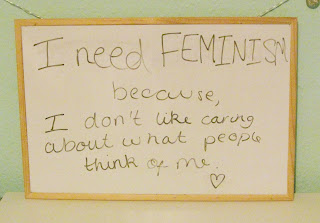 I need FEMINISM
because,
I don't like caring
about what people
think of me.